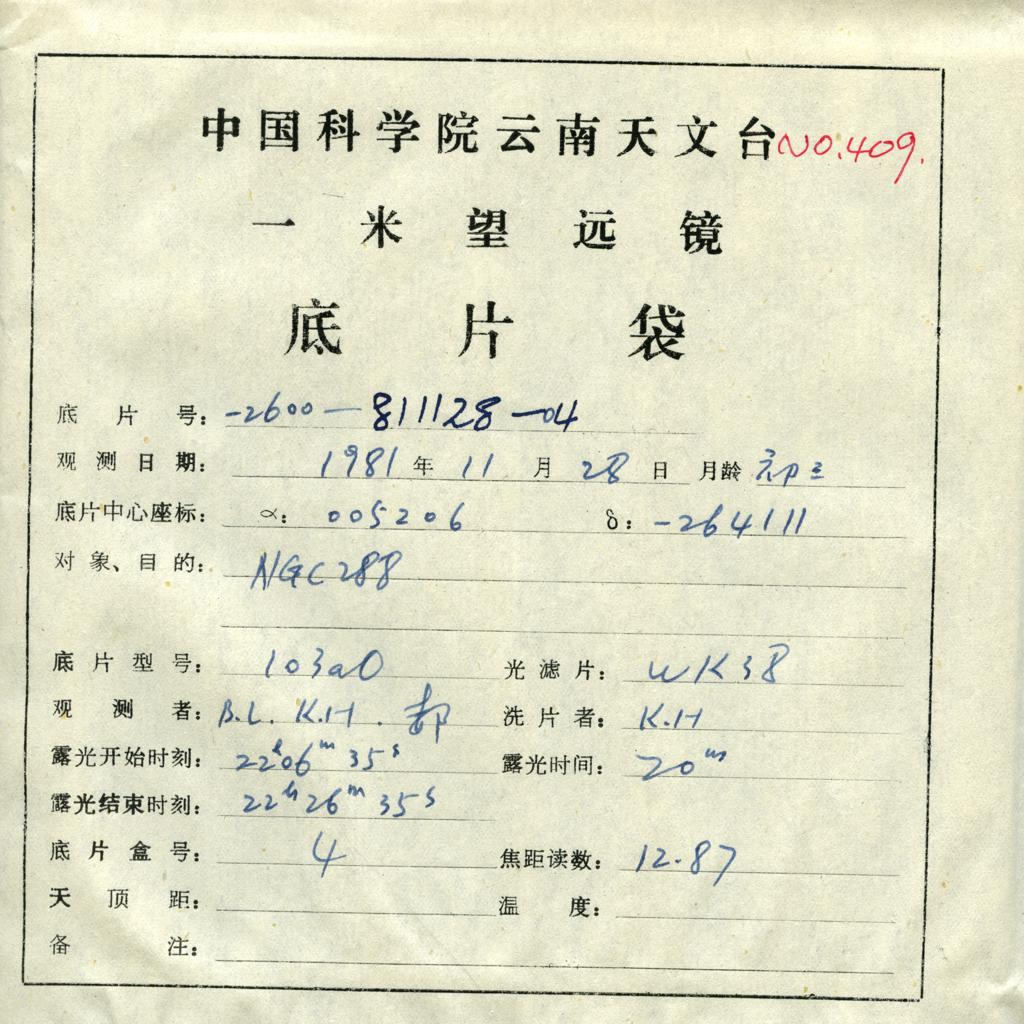 中国科学院云南天文台 NO.409.
一米望远镜
底片袋
底片号：-2600-811128-04
观测日期：1981年11月28日 月龄 初三
底片中心座标：α：005206 δ：-264111
对象、目的：NGC288
底片型号：103aO 光滤片：WK38
观测者：B.L. K.H. 郝 洗片者：K.H
露光开始时刻：22h06m35s 露光时间：20m
露光结束时刻：22h26m35s
底片盒号：4 焦距读数：12.87
天顶距： 温度：
备注：